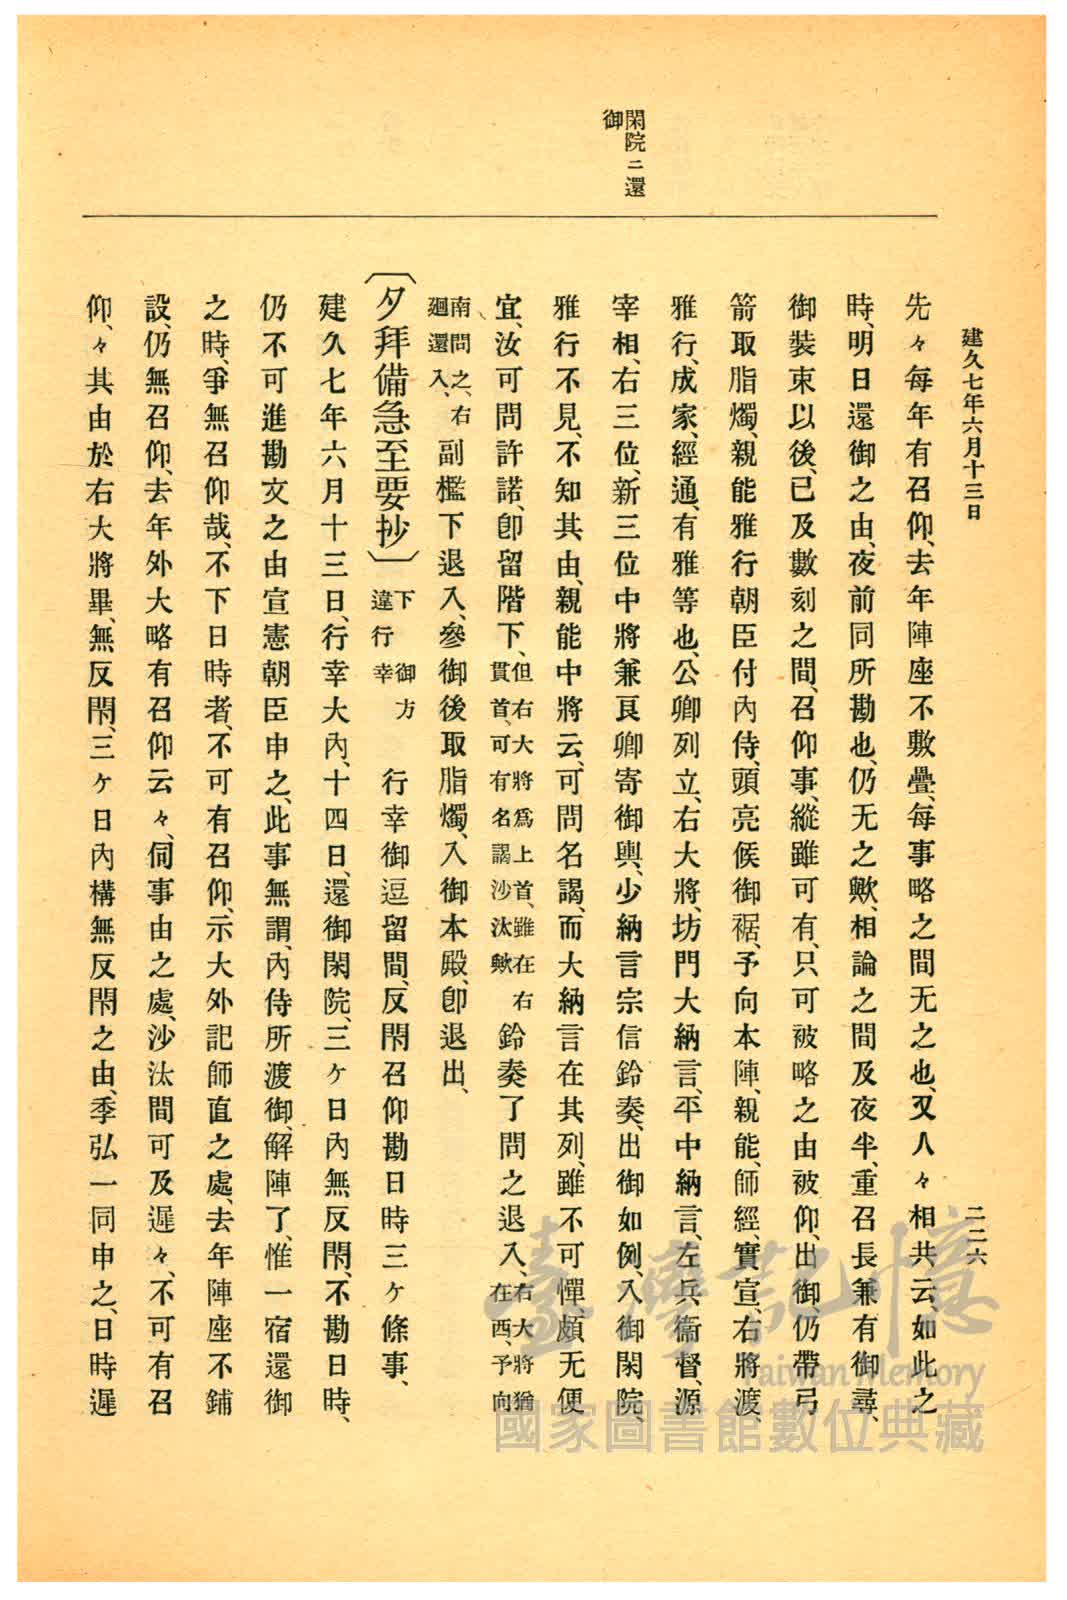 建久七年六月十三日
二二六
閑院ニ還
御
先々每年有召仰、去年陣座不敷疊、每事略之間无之也、又人々相共云、如此之
時、明日還御之由、夜前同所勘也、仍无之歟、相論之間及夜半、重召長兼有御尋、
御裝束以後、已及數刻之間、召仰事、縱雖可有、只可被略之由被仰、出御、仍帶弓
箭取脂燭、親能雅行朝臣付內侍、頭亮候御裾、予向本陣、親能、師經、實宣、右將渡、
雅行、成家、經通、有雅等也、公卿列立、右大將、坊門大納言、平中納言、左兵衞督、源
宰相、右三位、新三位中將兼良卿寄御輿、少納言宗信鈴奏、出御如例、入御閑院、
雅行不見、不知其由、親能中將云、可問名謁、而大納言在其列、雖不可憚頗无便
宜、汝可問許諾、卽留階下、但右大將爲上首、雖在右貫首、可有名謁沙汰歟鈴奏了問之退入、右大將猶在西、予向
南問之、右廻還入、副檻下退入、參御後取脂燭、入御本殿、卽退出、
〔夕拜備急至要抄〕下 御方違行幸 行幸御逗留間、反閇召仰勘日時三ケ條事、
建久七年六月十三日、行幸大內、十四日、還御閑院、三ケ日內無反閇、不勘日時、
仍不可進勘文之由宣憲朝臣申之、此事無謂、內侍所渡御、解陣了、惟一宿還御
之時、爭無召仰哉、不下日時者、不可有召仰、示大外記師直之處、去年陣座不鋪
設、仍無召仰、去年外大略有召仰云々、伺事由之處、沙汰間可及遲々、不可有召
仰、々其由於右大將畢、無反閇、三ケ日內構無反閇之由、季弘一同申之、日時遲
臺灣記憶
Taiwan Memory
國家圖書館數位典藏